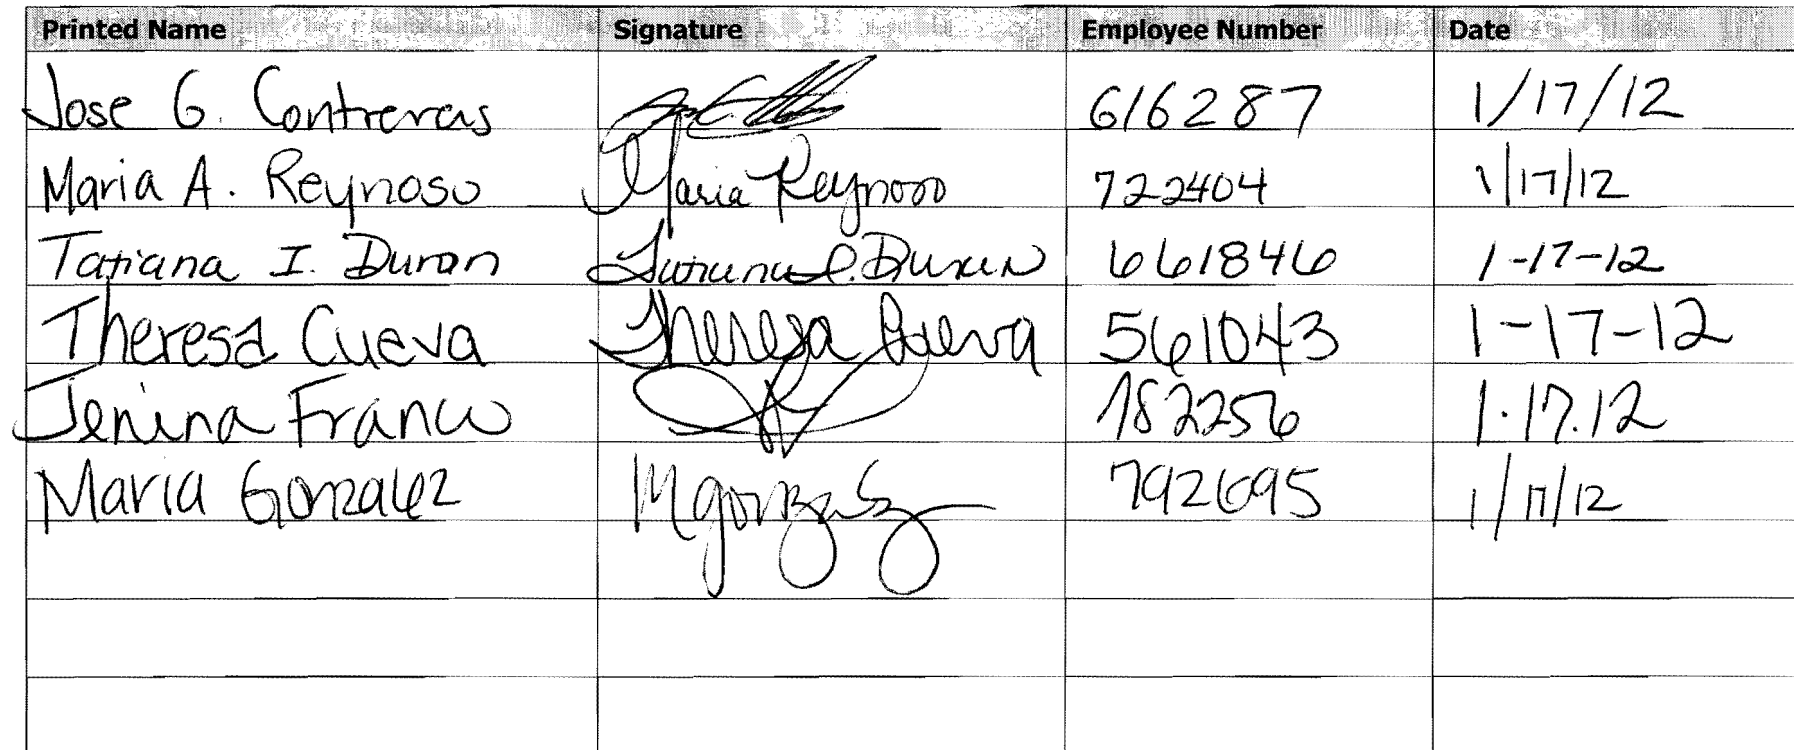 Printed Name Signature Employee Number Date
Jose G. Contreras 616287 1/17/12
Maria A. Reynoso Maria Reynoso 722404 1/17/12
Tatiana I. Duran Tatiana I. Duran 661846 1-17-12
Theresa Cueva Theresa Cueva 561043 1-17-12
Jenina Franco 782256 1.17.12
Maria Gonzalez MGonzalez 792695 1/17/12